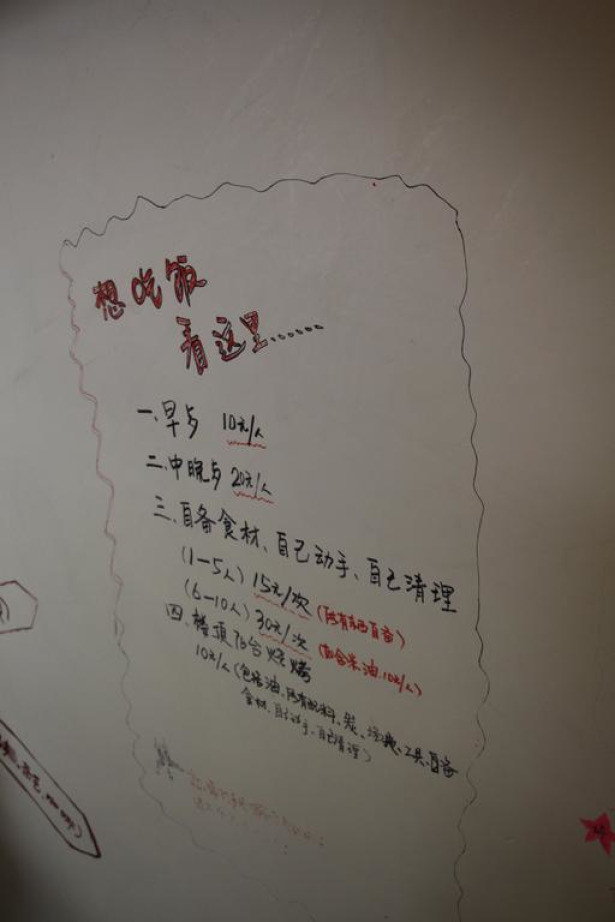 想吃饭
看这里......
一.早点 10元/人
二.中晚点 20元/人
三.自备食材、自己动手、自己清理
(1-5人) 15元/次 (所有东西自备)
(6-10人) 30元/次 (如含米.油.10元/人)
四.楼顶 烧烤
10元/人(包括油.所有配料、炭、 、工具、自备
食材、自己动手、自己清理)